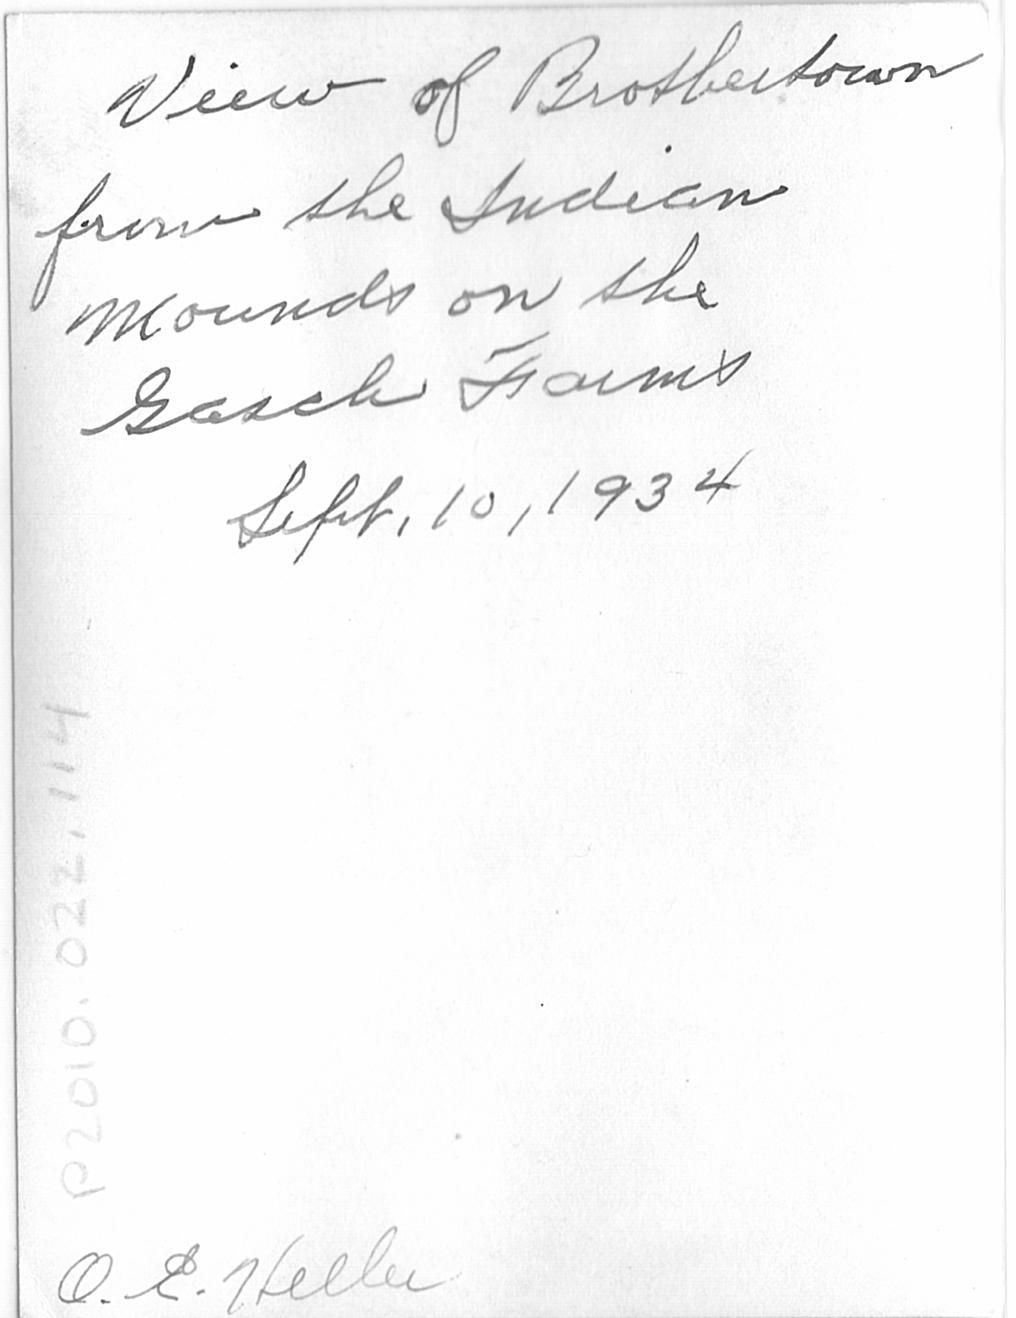 View of Brothertown
from the Indian
Mounds on the
Gasch Farms
Sept. 10, 1934
P2010.022.114
O. E. Heller